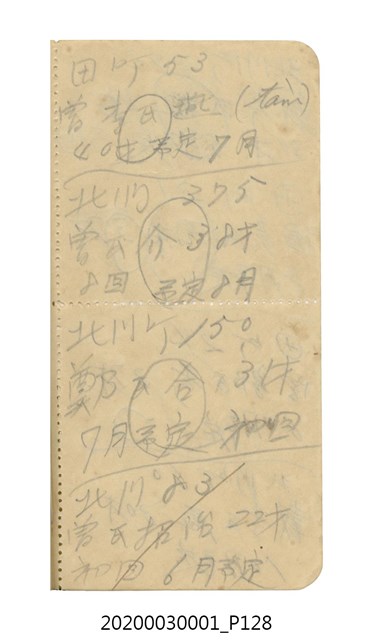 田町 53
曾李氏 (tàm)
40才 予定7月
北川町 375
曾氏介 38才
8回 予定8月
北川町 150
鄭氏合 31才
7月予定 初回
北川 83
曾氏招治 22才
初回 6月予定
20200030001_P128